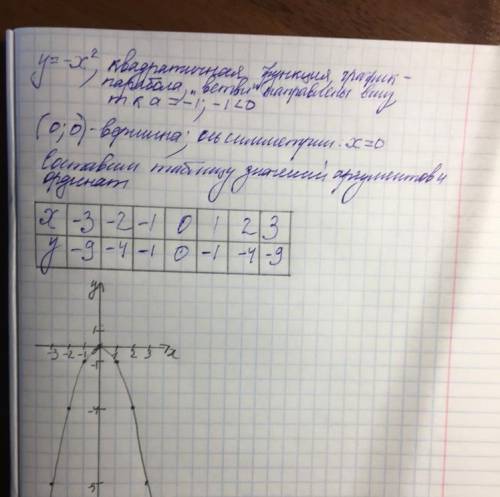 y=-x², квадратичная функция, график -
парабола, "ветви" направлены вниз
т к a = -1; -1<0
(0;0)-вершина; ось симметрии x=0
Составим таблицу значений аргументов и
ординат
x -3 -2 -1 0 1 2 3
y -9 -4 -1 0 -1 -4 -9
y
1
-3 -2 -1 1 2 3 x
-1
-4